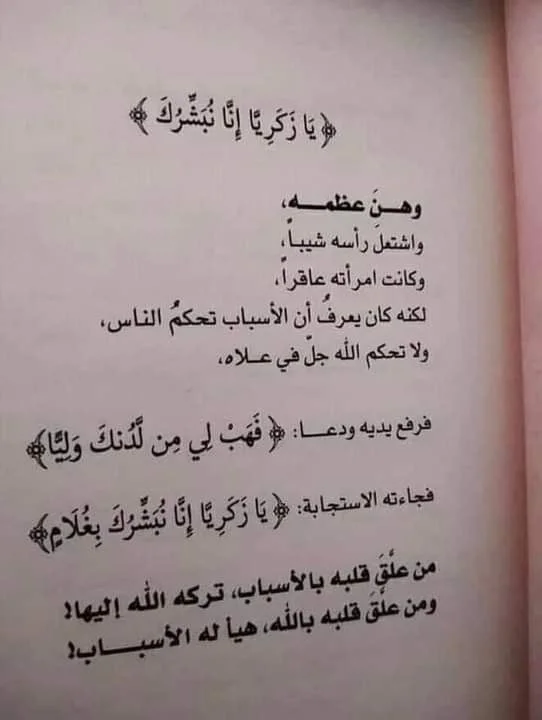 ﴿يَا زَكَرِيَّا إِنَّا نُبَشِّرُكَ﴾
وهـنَ عظمـــه،
واشتعلَ رأسه شيباً،
وكانت امرأته عاقراً،
لكنه كان يعرفُ أن الأسباب تحكمُ الناس،
ولا تحكم الله جلّ في عـلاه،
فرفع يديه ودعــا: ﴿فَهَبْ لِي مِن لَّدُنكَ وَلِيًّا﴾
فجاءته الاستجابة: ﴿يَا زَكَرِيَّا إِنَّا نُبَشِّرُكَ بِغُلَامٍ﴾
من علَّقَ قلبه بالأسباب، تركه الله إليها!
ومن علَّقَ قلبه بالله، هيأ له الأسبـــاب!